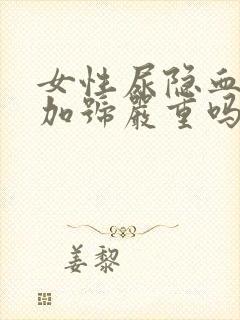 女性尿隐血
加号严重吗
姜黎